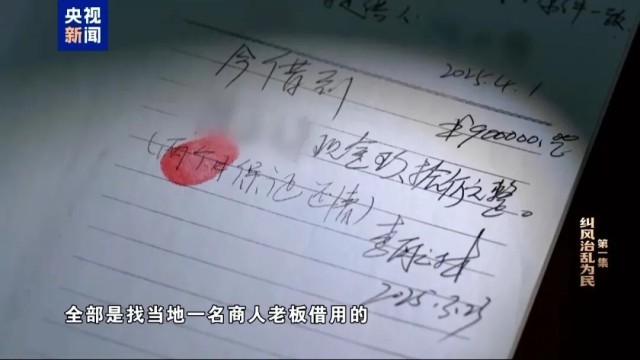 央视
新闻
2025.4.1
今借到
¥900000.元
现金玖拾万元整。
(两个月保证还清)
2025.3.23
第一集
纠风治乱为民
全部是找当地一名商人老板借用的